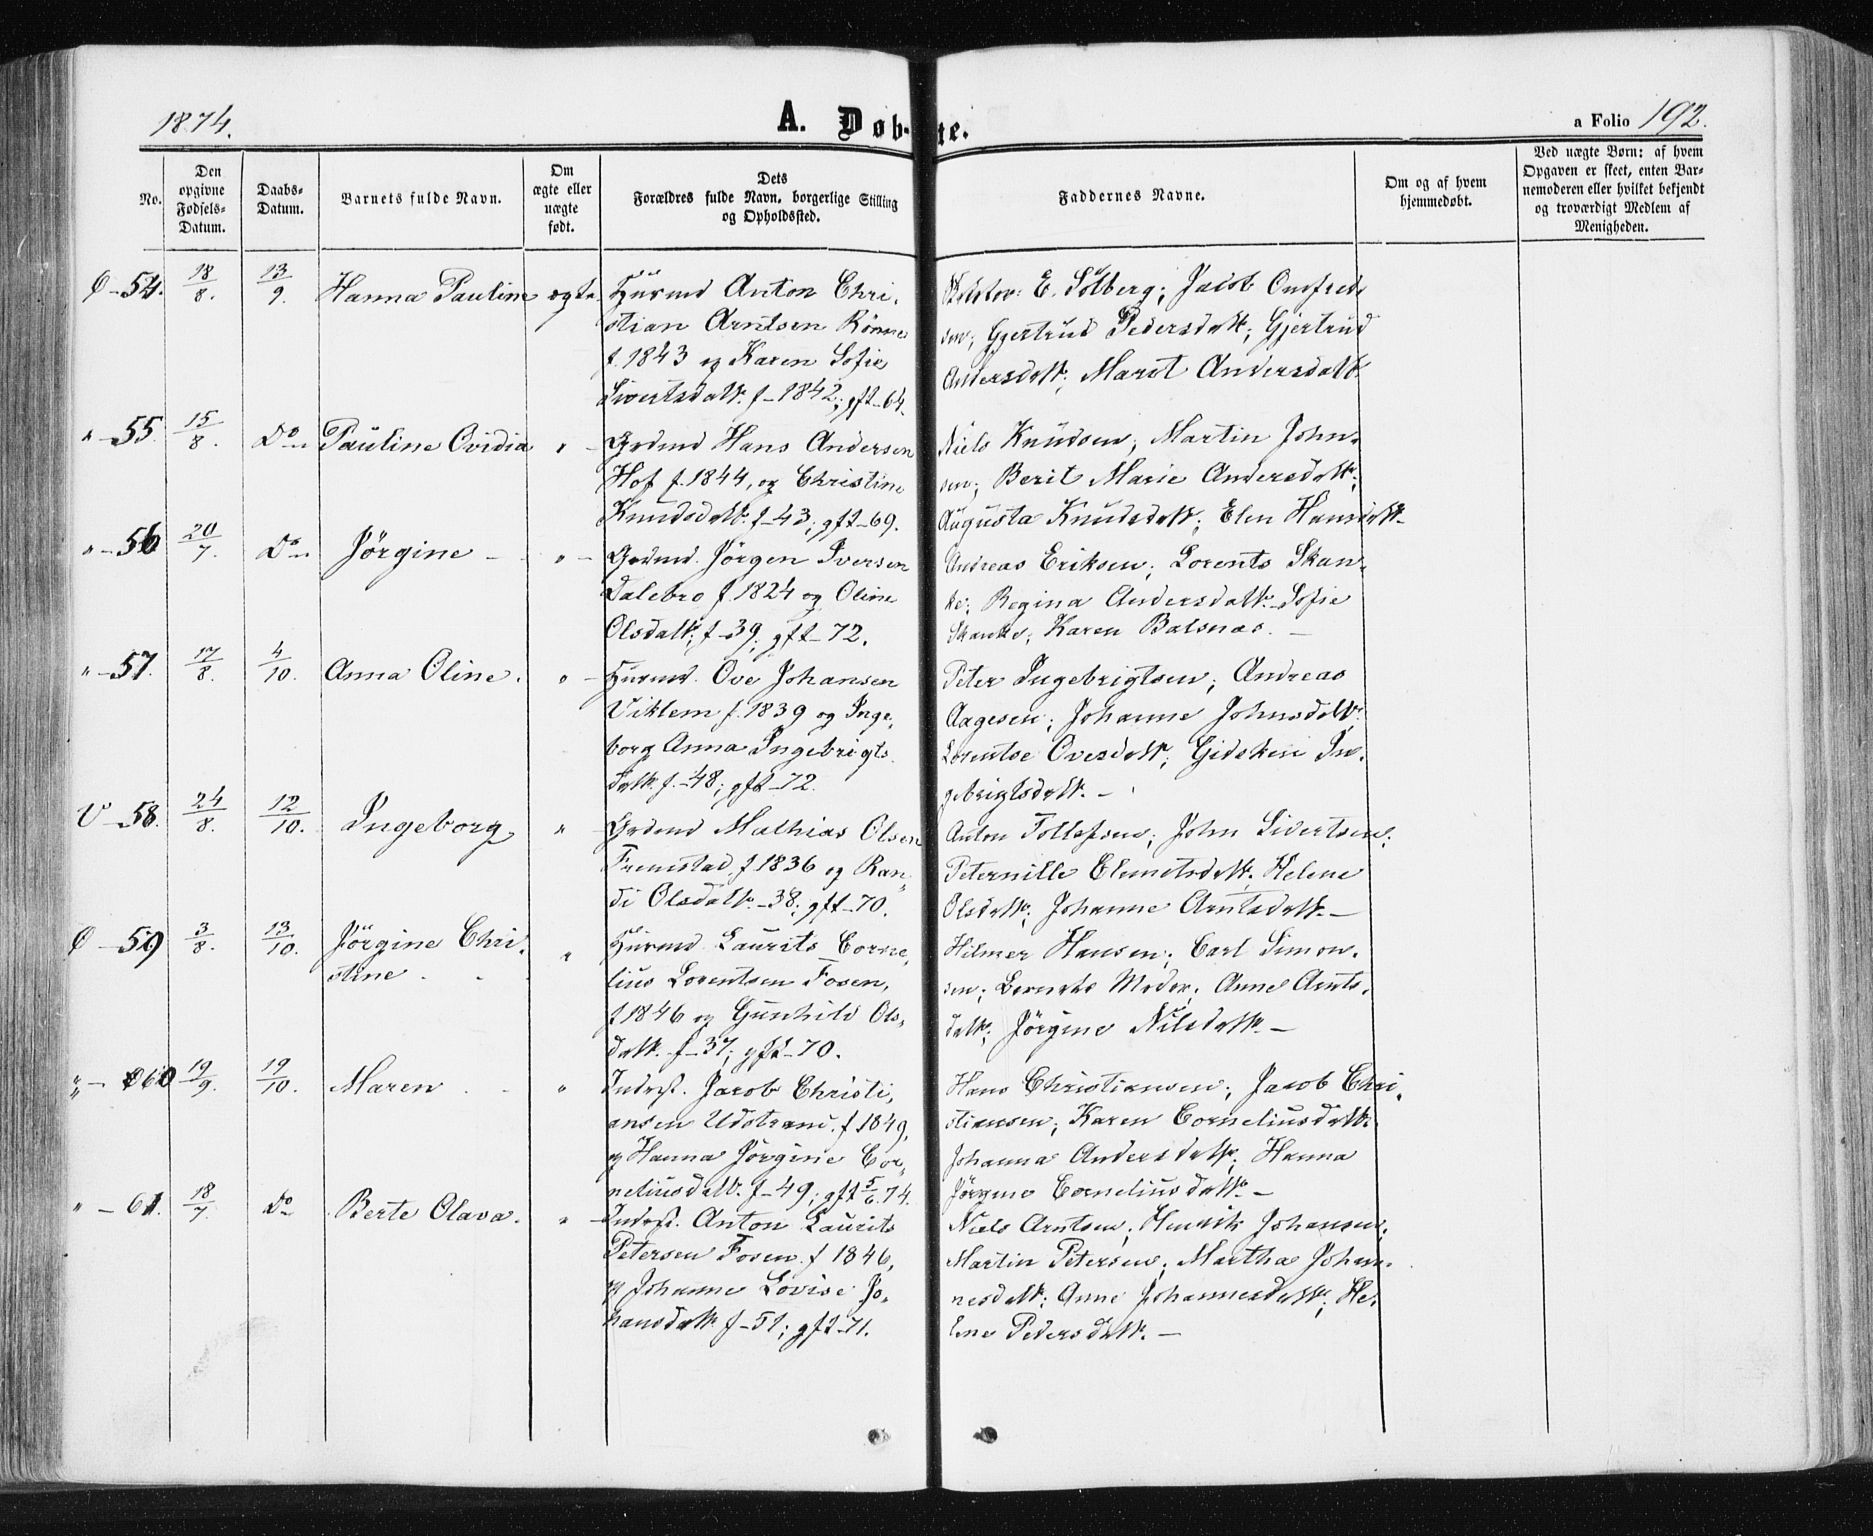 1874.
A. Døb-te.
a Folio 192.
No.
Den opgivne Fødsels-Datum.
Daabs-Datum.
Barnets fulde Navn.
Om ægte eller uægte født.
Dets Forældres fulde Navn, borgerlige Stilling og Opholdssted.
Faddernes Navne.
Om og af hvem hjemmedøbt.
Ved uægte Børn: af hvem Opgaven er skeet, enten Barnemoderen eller hvilket bekjendt og troværdigt Medlem af Menigheden.
Ø - 54. 18/8. 13/9. Hanna Pauline ægte. Husmd Anton Chri-
stian Arntsen Rönne
f. 1843 og Karen Sofie
Sivertsdatt. f - 1842; gft - 64.
E. Solberg; Jacob Onsfred-
sen; Gjertrud Pedersdatt; Gjertrud
Andersdatt; Marit Andersdatt
" - 55. 15/8. Do Pauline Ovidia " Grdmd Hans Andersen
Hof f. 1844, og Christine
Knudsdatt. f - 43; gft - 69.
Niels Knudsen; Martin John-
sen; Berit Marie Andersdatt;
Augusta Knudsdatt; Elen Hansdatt -
" - 56 20/7. Do Jørgine - " - Grdmd. Jörgen Iversen
Dalebro f. 1824 og Oline
Olsdatt; f - 39; gft - 72.
Andreas Eriksen; Lorents Skan-
ke; Regina Andersdatt. Sofie
Skanke; Karen Balsnæs. -
" - 57. 17/8. 4/10. Anna Oline. " - Husmd. Ove Johansen
Viklem f. 1839 og Inge-
borg Anna Ingebrigts
datt. f. - 48; gft - 72.
Peter Ingebrigtsen; Andreas
Aagesen; Johanne Johnsdatt.
Lorentse Ovesdatt; Gidsken In-
gebrigtsdatt. -
V - 58. 24/8. 12/10. Ingeborg " Grdmd Mathias Olsen
Fremstad, f 1836 og Ran-
di Olsdatt. - 38; gft - 70.
Anton Tollefsen; John Sivertsen;
Peternille Elmetsdatt. Helene
Olsdatt; Johanne Arntsdatt. -
Ø - 59 3/8. 13/10. Jørgine Chri-
stine " Husmd Laurits Corne-
lius Lorentsen Fosen,
f 1846 og Gunhild Ols-
datt. f - 37; gft - 70.
Hilmer Hansen; Carl Simon-
sen; Barnets Moder; Anne Arnts-
datt; Jörgine Nilsdatt. -
" - 60 19/9. 19/10. Maren " Inderst. Jacob Christi-
ansen Udstrand. f 1849,
og Hanna Jörgine Cor-
neliusdatt. f - 49; gft 5/6. 74.
Hans Christiansen; Jacob Chri-
stiansen; Karen Corneliusdatt.
Johanna Andersdatt; Hanna
Jörgine Corneliusdatt. -
" - 61. 18/7. Do Berte Olava. " - Inderst. Anton Laurits
Petersen Fosen. f 1846,
og Johanne Lovise Jo-
hansdatt f - 51; gft - 71.
Niels Arntsen; Henrik Johansen;
Martin Petersen; Martha Johan-
nesdatt; Anne Johannesdatt; He-
lene Pedersdatt. -